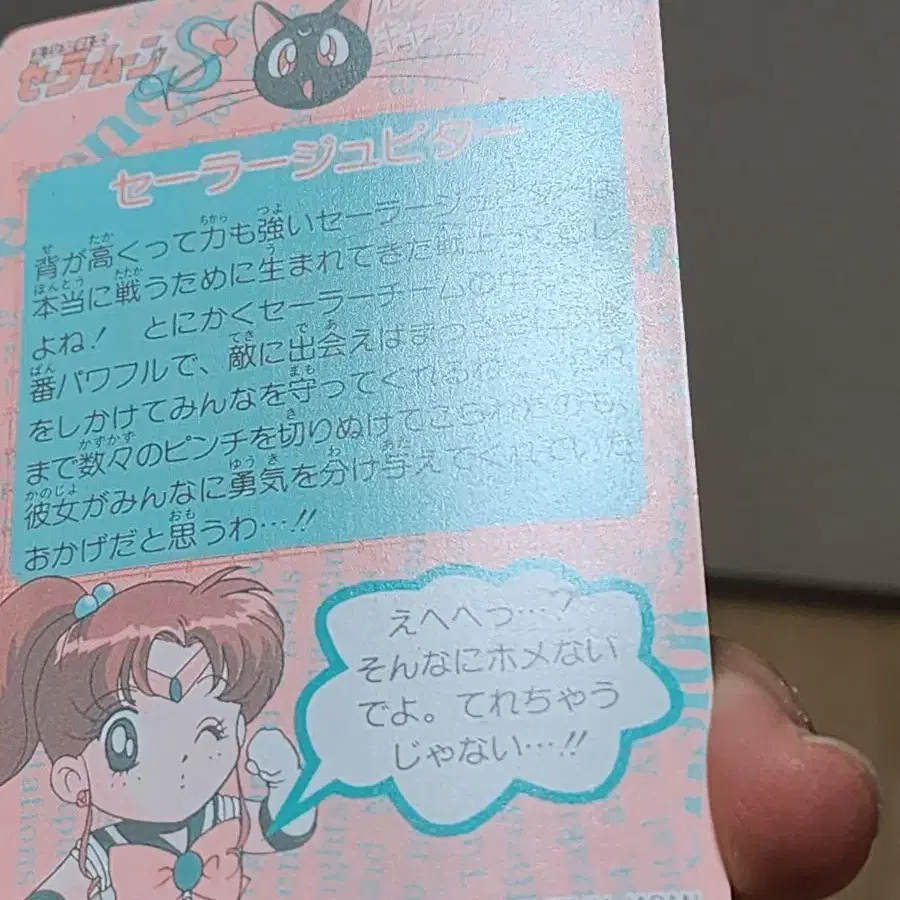 セーラームーンS
セーラージュピター
背が高くって力も強いセーラージュピターは
本当に戦うために生まれてきた戦士って
よね! とにかくセーラーチームの中
番パワフルで、敵に出会えばまっさき
をしかけてみんなを守ってくれる
まで数々のピンチを切りぬけてこられたのも、
彼女がみんなに勇気を分け与えてくれていた
おかげだと思うわ…!!
えへへっ…?
そんなにホメない
でよ。てれちゃう
じゃない…!!
JAPAN